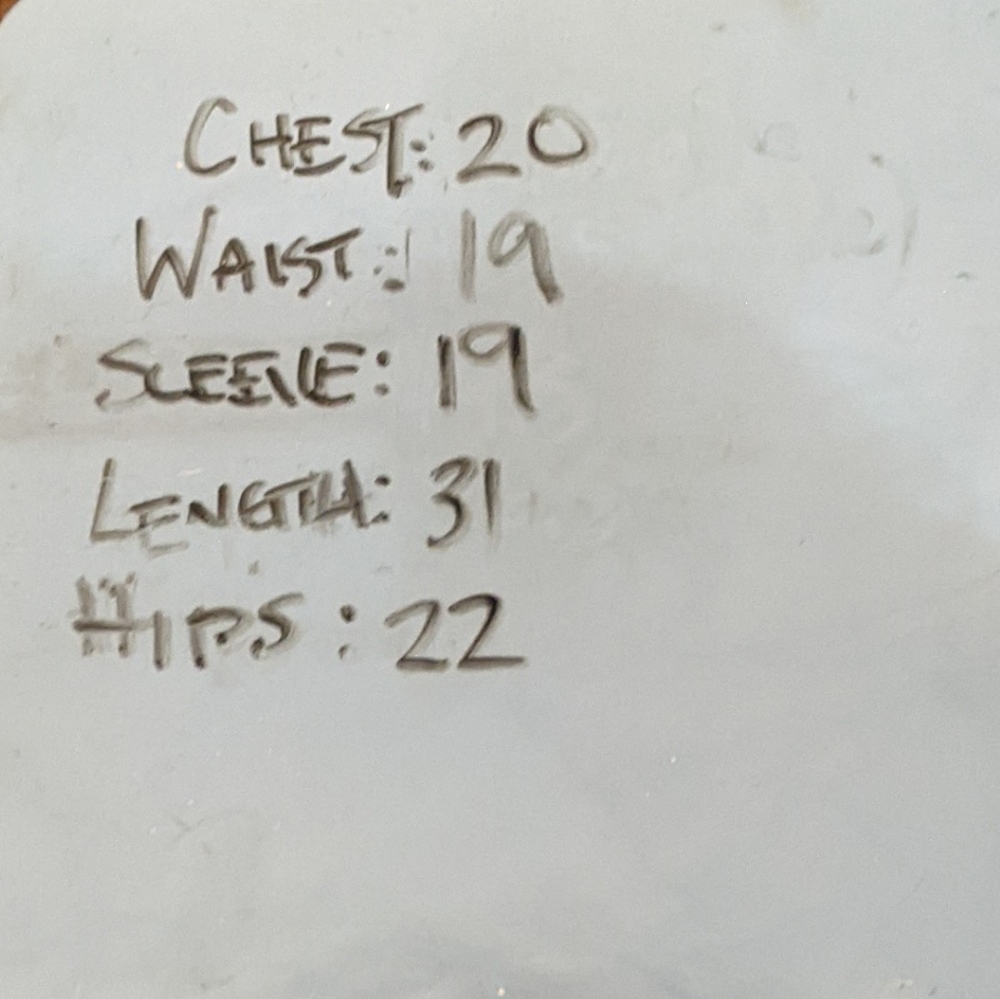 CHEST: 20
WAIST: 19
SLEEVE: 19
LENGTH: 31
HIPS: 22